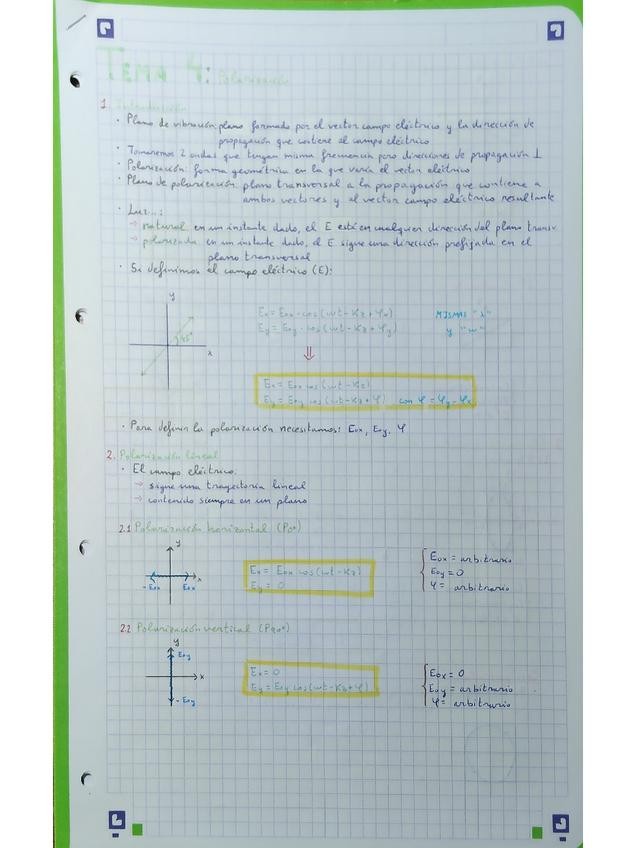 TEMA 4: Polarización
1. Introducción
· Plano de vibración: plano formado por el vector campo eléctrico y la dirección de
propagación que contiene al campo eléctrico
· Tomaremos 2 ondas que tengan misma frecuencia pero direcciones de propagación ⊥
· Polarización: forma geométrica en la que varía el vector eléctrico
· Plano de polarización: plano transversal a la propagación que contiene a
ambos vectores y al vector campo eléctrico resultante
· Luz...:
→ natural en un instante dado, el E está en cualquier dirección del plano transv.
→ polarizada en un instante dado, el E sigue una dirección prefijada en el
plano transversal
· Si definimos el campo eléctrico (E):
y
45°
x
Ex = Eox · cos(wt - Kz + φx)
Ey = Eoy · cos(wt - Kz + φy)
MISMAS "λ"
y "w"
⇓
Ex = Eox cos(wt - Kz)
Ey = Eoy cos(wt - Kz + φ) con φ = φy - φx
· Para definir la polarización necesitamos: Eox, Eoy, φ
2. Polarización lineal
· El campo eléctrico:
→ sigue una trayectoria lineal
→ contenido siempre en un plano
2.1 Polarización horizontal (P0°)
y
x
-Eox Eox
Ex = Eox cos(wt - Kz)
Ey = 0
Eox = arbitrario
Eoy = 0
φ = arbitrario
2.2 Polarización vertical (P90°)
y
Eoy
x
-Eoy
Ex = 0
Ey = Eoy cos(wt - Kz + φ)
Eox = 0
Eoy = arbitrario
φ = arbitrario